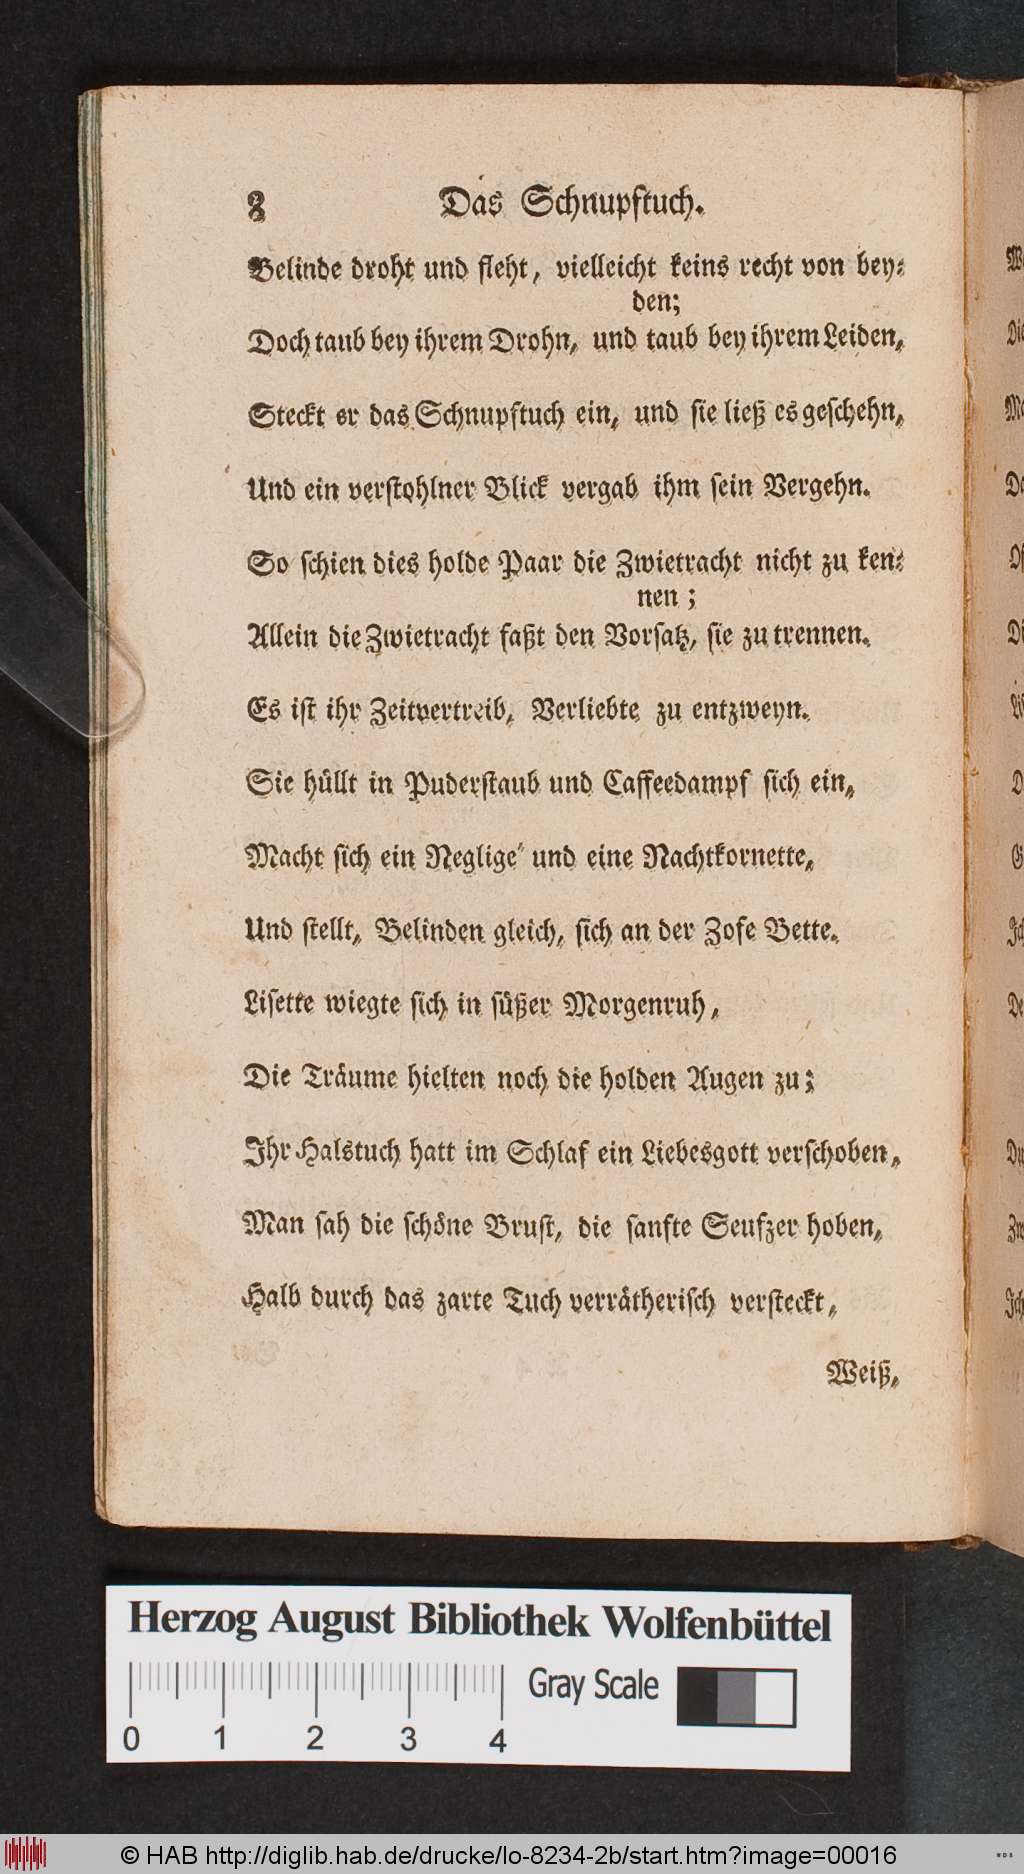 8 Das Schnupftuch.
Belinde droht und fleht, vielleicht keins recht von bey-
den;
Doch taub bey ihrem Drohn, und taub bey ihrem Leiden,
Steckt er das Schnupftuch ein, und sie ließ es geschehn,
Und ein verstohlner Blick vergab ihm sein Vergehn.
So schien dies holde Paar die Zwietracht nicht zu ken-
nen;
Allein die Zwietracht faßt den Vorsatz, sie zu trennen.
Es ist ihr Zeitvertreib, Verliebte zu entzweyn.
Sie hüllt in Puderstaub und Caffeedampf sich ein,
Macht sich ein Neglige' und eine Nachtkornette,
Und stellt, Belinden gleich, sich an der Zofe Bette.
Lisette wiegte sich in süßer Morgenruh,
Die Träume hielten noch die holden Augen zu;
Ihr Halstuch hatt im Schlaf ein Liebesgott verschoben,
Man sah die schöne Brust, die sanfte Seufzer hoben,
Halb durch das zarte Tuch verrätherisch versteckt,
Weiß,
Herzog August Bibliothek Wolfenbüttel
Gray Scale
0 1 2 3 4
© HAB http://diglib.hab.de/drucke/lo-8234-2b/start.htm?image=00016